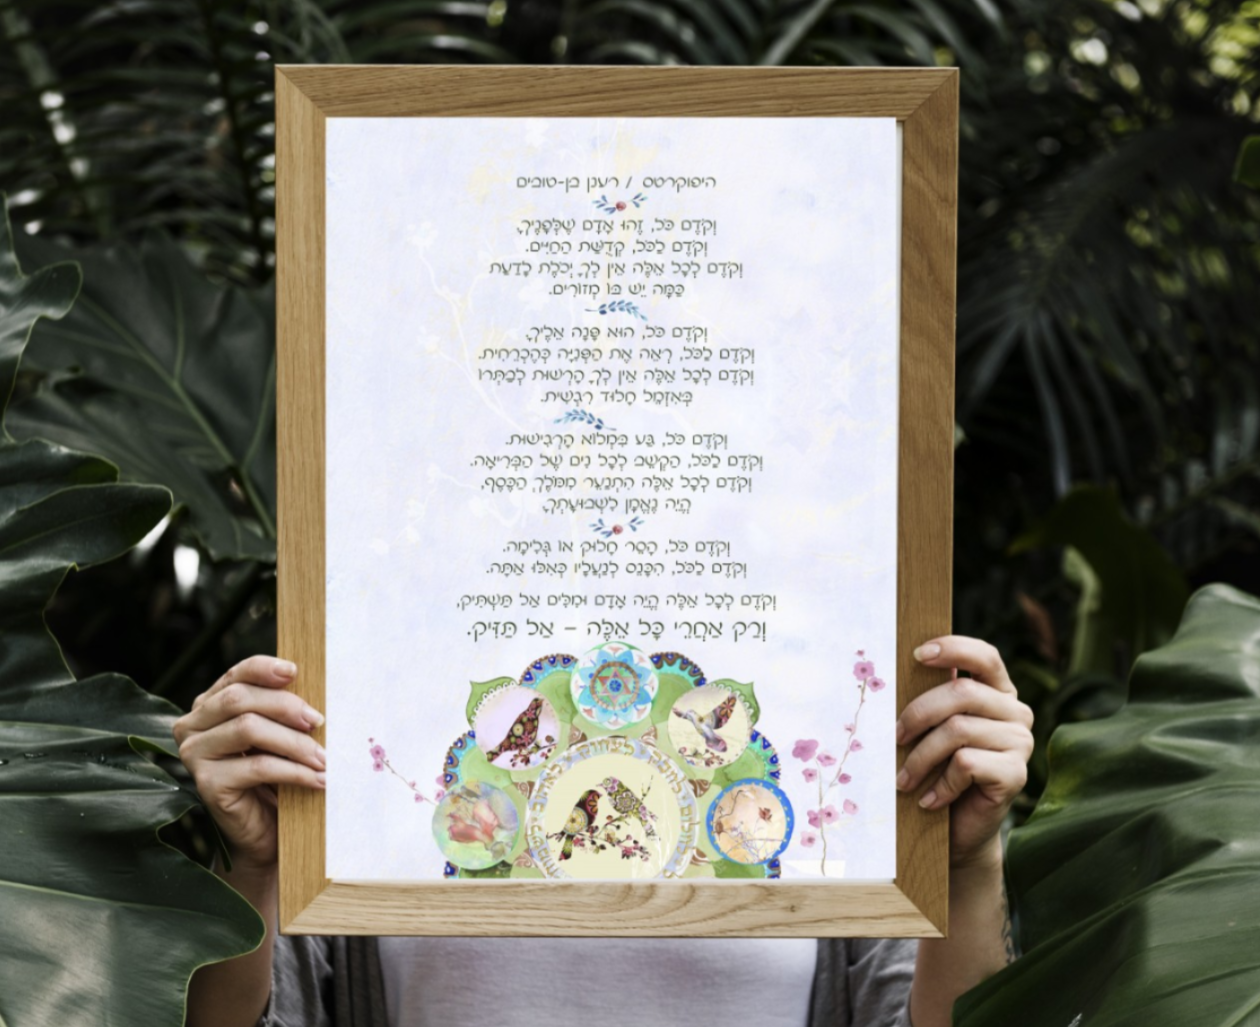 היפוקרטס / רענן בן-טובים
וְקֹדֶם כֹּל, זֶהוּ אָדָם שֶׁלְּפָנֶיךָ,
וְקֹדֶם לַכֹּל, קְדֻשַּׁת הַחַיִּים.
וְקֹדֶם לְכָל אֵלֶּה אֵין לְךָ יְכֹלֶת לָדַעַת
כַּמָּה יֵשׁ בּוֹ מְזוֹרִים.
וְקֹדֶם כֹּל, הוּא פָּנָה אֵלֶיךָ,
וְקֹדֶם לַכֹּל, רְאֵה אֶת הַפְּנִיָּה כְּהֶכְרֵחִית.
וְקֹדֶם לְכָל אֵלֶּה אֵין לְךָ הָרְשׁוּת לְבַתְּרוֹ
כְּאִזְמֵל חָלוּד רִגְשִׁית.
וְקֹדֶם כֹּל, גַּע בִּמְלוֹא הָרְגִישׁוּת.
וְקֹדֶם לַכֹּל, הַקְשֵׁב לְכָל נִים שֶׁל הַבְּרִיאָה.
וְקֹדֶם לְכָל אֵלֶּה הִתְנַעֵר מִמּוֹלֶךְ הַכֶּסֶף,
הֱיֵה נֶאֱמָן לִשְׁבוּעָתְךָ.
וְקֹדֶם כֹּל, הָסֵר חָלוּק אוֹ גְּלִימָה.
וְקֹדֶם לַכֹּל, הִכָּנֵס לְנַעֲלָיו כְּאִלּוּ אַתָּה.
וְקֹדֶם לְכָל אֵלֶּה הֱיֵה אָדָם וּמִלִּים אַל תַּשְׁתִּיק,
וְרַק אַחֲרֵי כָּל אֵלֶּה – אַל תַּזִּיק.